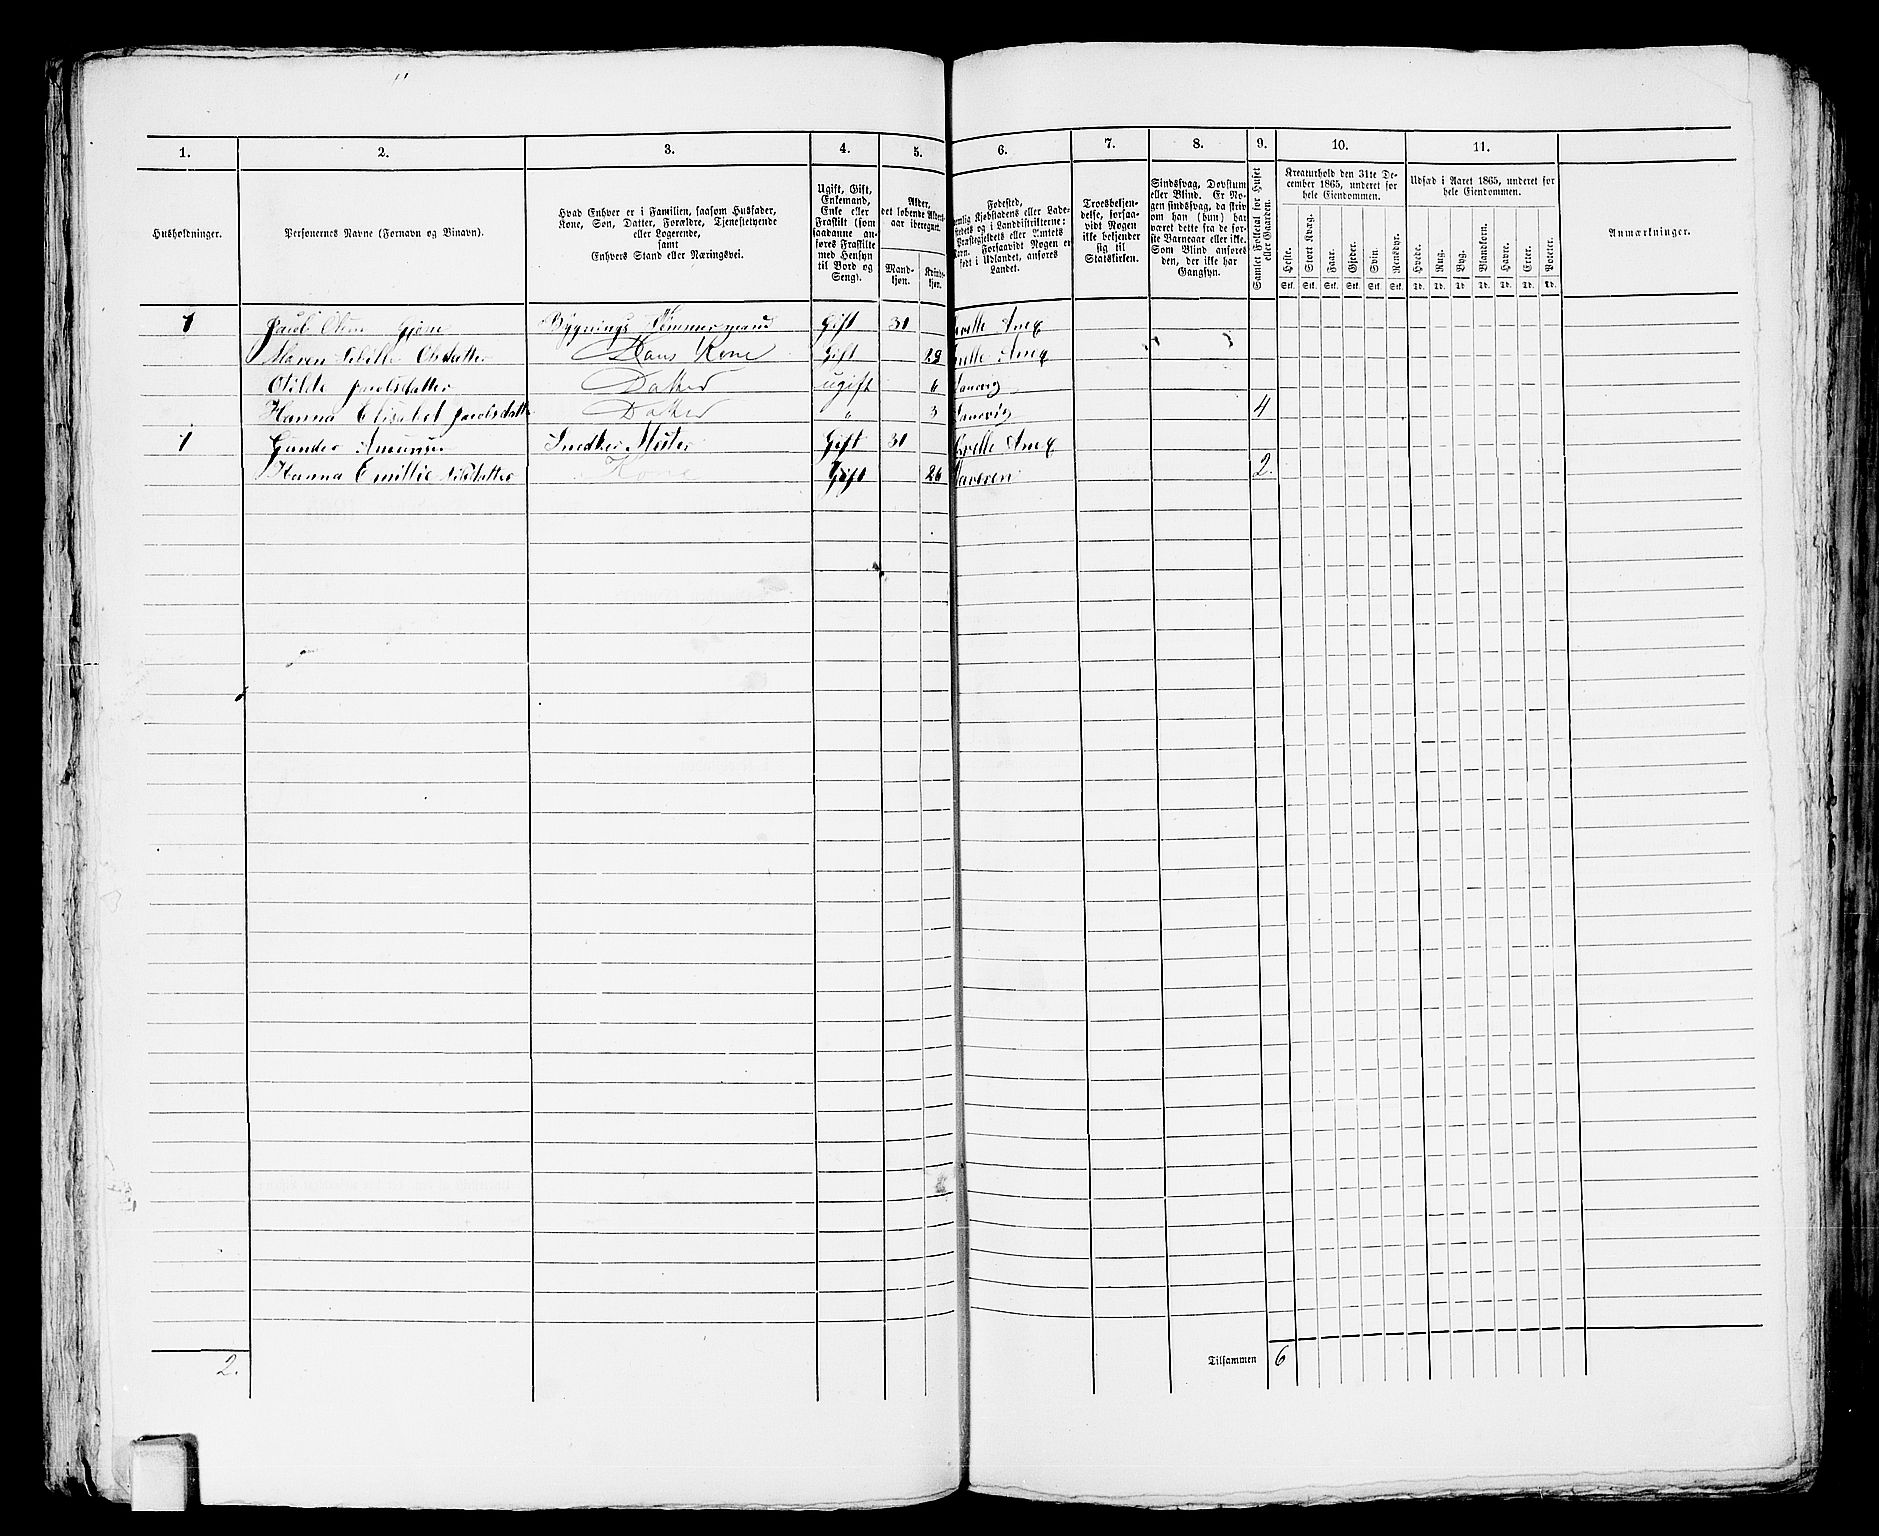 1. 2. 3. 4. 5. 6. 7. 8. 9. 10. 11.
Husholdninger.
Personernes Navne (Fornavn og Binavn).
Hvad Enhver er i Familien, saasom Husfader,
Kone, Søn, Datter, Forældre, Tjenestetyende
eller Logerende,
samt
Enhvers Stand eller Næringsvei.
Ugift, Gift,
Enkemand,
Enke eller
Fraskilt (som
saadanne an-
føres Fraskilte
med Hensyn
til Bord og
Seng).
Alder,
det løbende Alders-
aar iberegnet.
Mand-
kjøn.
Kvinde-
kjøn.
Fødested,
nemlig Kjøbstadens eller Lade-
stedets og i Landdistrikterne:
Præstegjeldets eller Amtets
Navn. Forsaavidt Nogen er
født i Udlandet, anføres
Landet.
Troesbekjen-
delse, forsaa-
vidt Nogen
ikke bekjender
sig til
Statskirken.
Sindssvag, Døvstum
eller Blind. Er No-
gen sindssvag, da skriv
om han (hun) har
været dette fra de før-
ste Barneaar eller ikke.
Som Blind anføres
den, der ikke har
Gangsyn.
Samlet Folketal for Huset
eller Gaarden.
Kreaturhold den 31te De-
cember 1865, underet for
hele Eiendommen.
Heste. Stort Kvæg. Faar. Gjeder. Svin. Rensdyr.
Stk. Stk. Stk. Stk. Stk. Stk.
Udsæd i Aaret 1865, underet for
hele Eiendommen.
Hvede. Rug. Byg. Blandkorn. Havre. Erter. Poteter.
Td. Td. Td. Td. Td. Td. Td.
Anmærkninger.
1 Jacob Olsen Bygnings Tømmermand Gift 31 Anex
Maren Olsdatter Hans Kone Gift 29 Anex
Otilde Jacobsdatter Datter ugift 6
Hanna Elisabet Jacobsdatter Datter " 3 4
1 Gunder Snedker Mester Gift 31 Anex
Hanna Emillie Nilsdatter Kone Gift 26 2.
2. Tilsammen 6